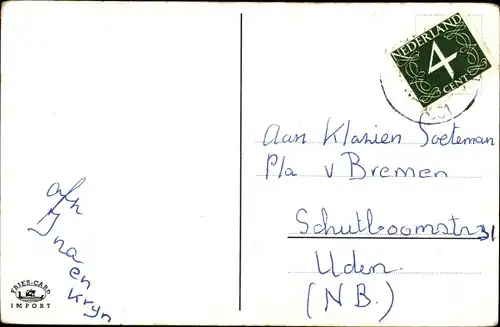 NEDERLAND
4
CENT
Aan Klazien Soeteman
Pla v Bremen
Schutboomstr 31
Uden.
(NB.)
afz
Ina
en
Kryn
FRIES-CARD
IMPORT